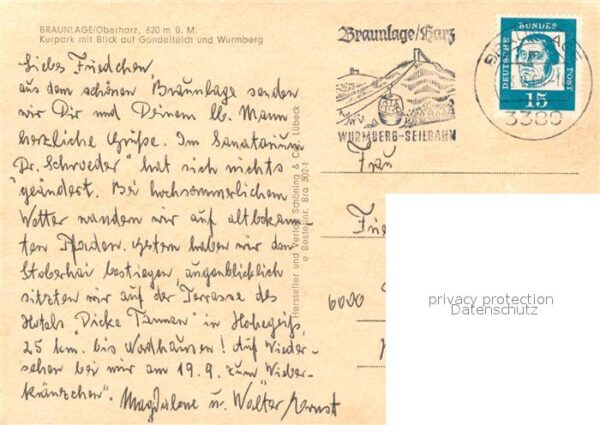 BRAUNLAGE/Oberharz, 620 m ü. M.
Kurpark mit Blick auf Gondelteich und Wurmberg
Liebes Friedchen,
aus dem schönen Braunlage senden
wir Dir und Deinem lb. Mann
herzliche Grüße. Im Sanatorium
"Dr. Schroeder" hat sich nichts
geändert. Bei hochsommerlichem
Wetter wandern wir auf altbekann-
ten Pfaden. Gestern haben wir den
Stoberhai bestiegen, augenblicklich
sitzten wir auf der Terrasse des
Hotels "Dicke Tannen" in Hohegeiß,
25 km. bis Nordhausen! Auf Wieder-
sehen bei mir am 19.9. zum "Wieber-
kränzchen". Magdalene u. Walter Ernst
Hersteller und Verlag Schöning & Co., Lübeck
Bestellnr. Bra 302
Braunlage/Harz
WURMBERG-SEILBAHN
BRAUNLAGE
3389
DEUTSCHE BUNDES POST
15
Frau
Frie
6000
privacy protection
Datenschutz